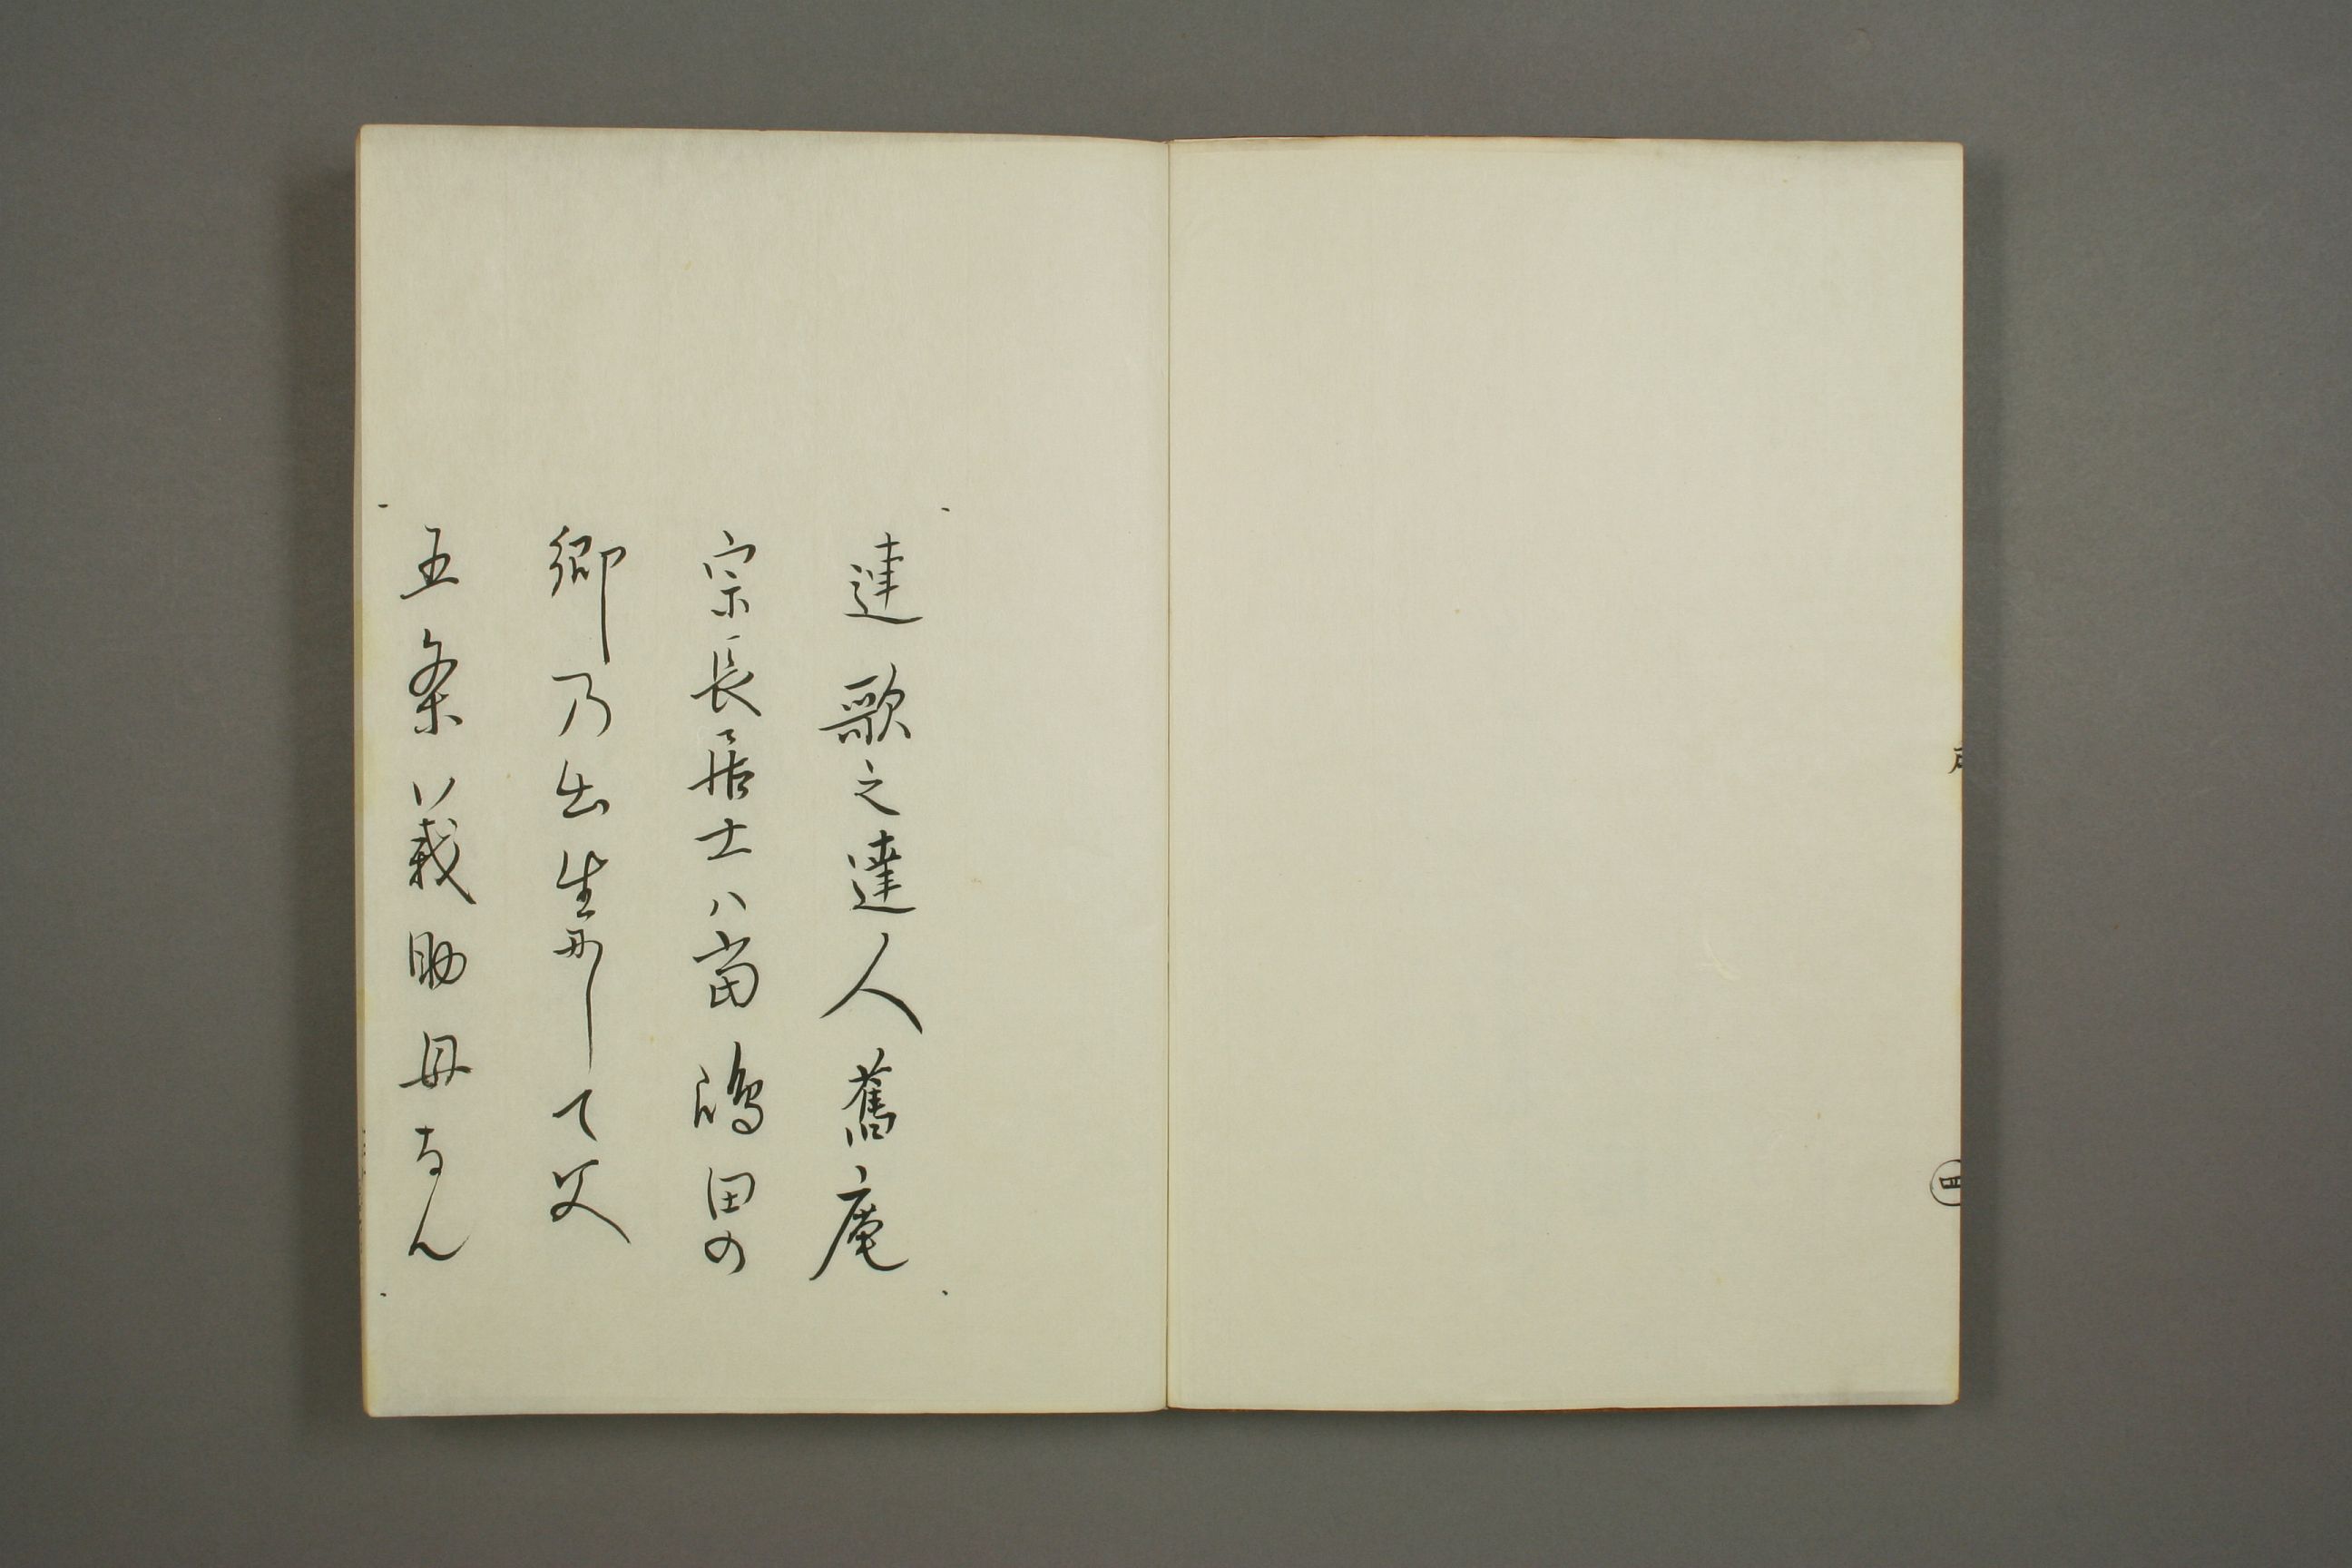 四
連歌之達人舊庵
宗長居士ハ當嶋田の
郷乃出生丹して父
五条義助母なん